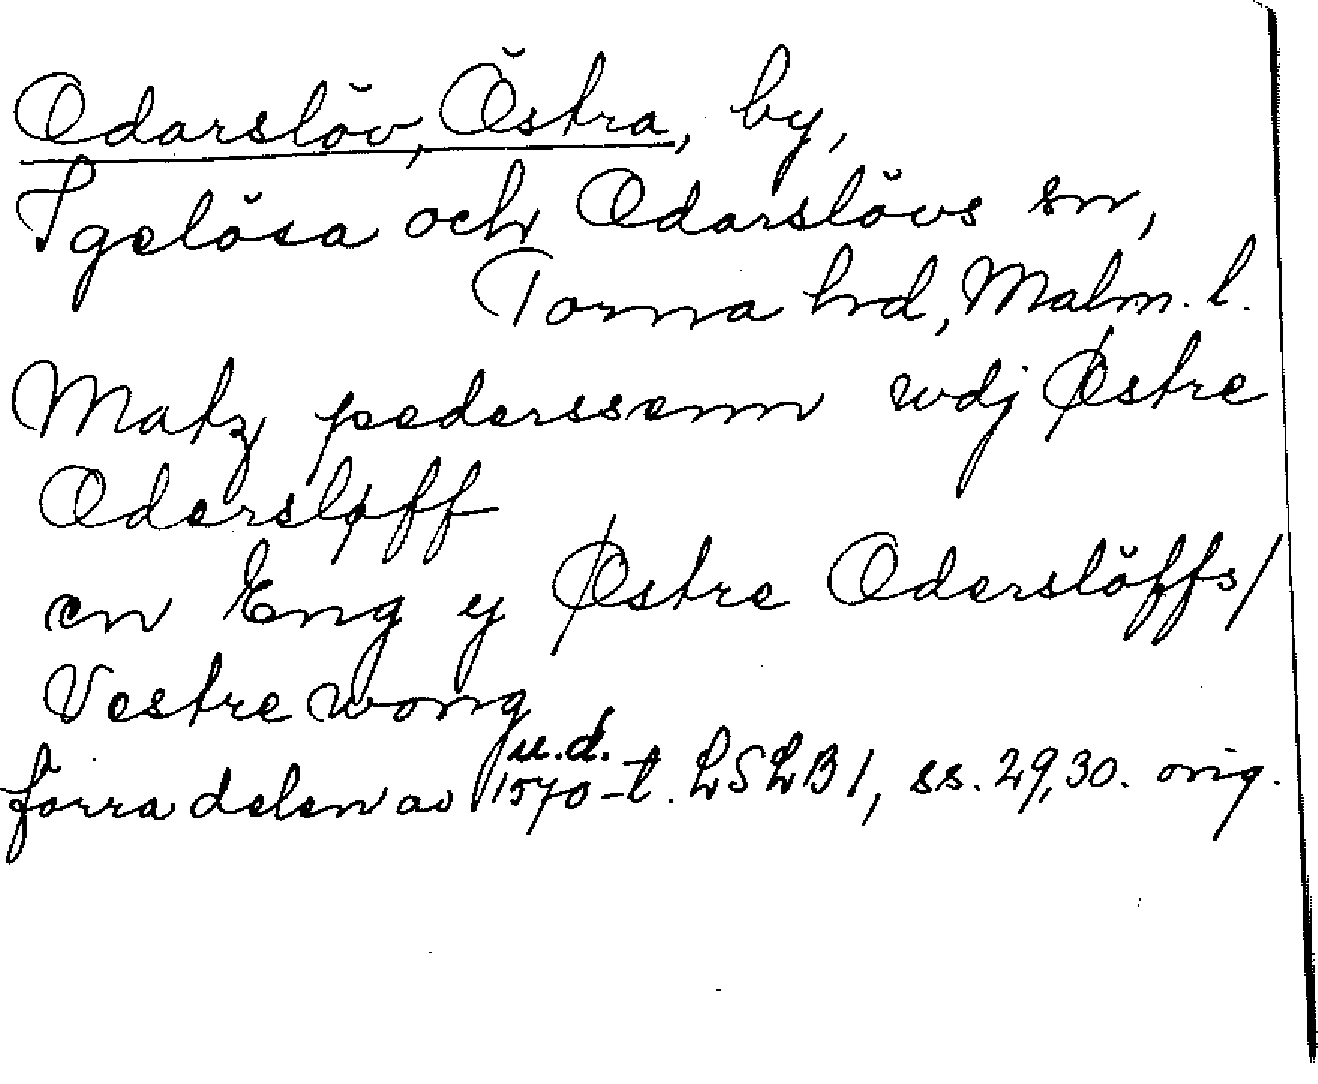 Odarslöv, Östra, by,
Igelösa och Odarslövs sn,
Torna hrd, Malm. l.
Matz pederssenn wdj Østre
Odersløff
en Eng y Østre Oderslöffs/
Vestre wong
u.d.
förra delen av 1570-t. LSLB 1, ss. 29, 30. orig.